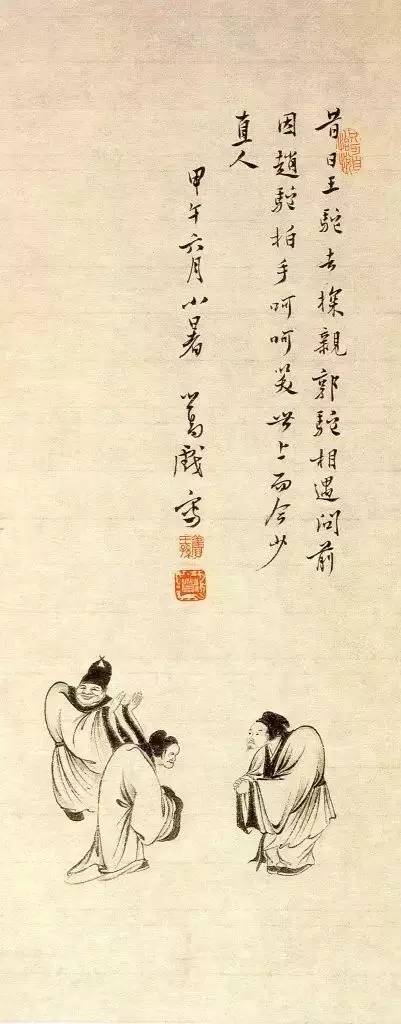 昔日王駝去探親郭駝相遇問前
因趙駝拍手呵呵笑世上而今少
直人
甲午六月小暑　心畬戲寫